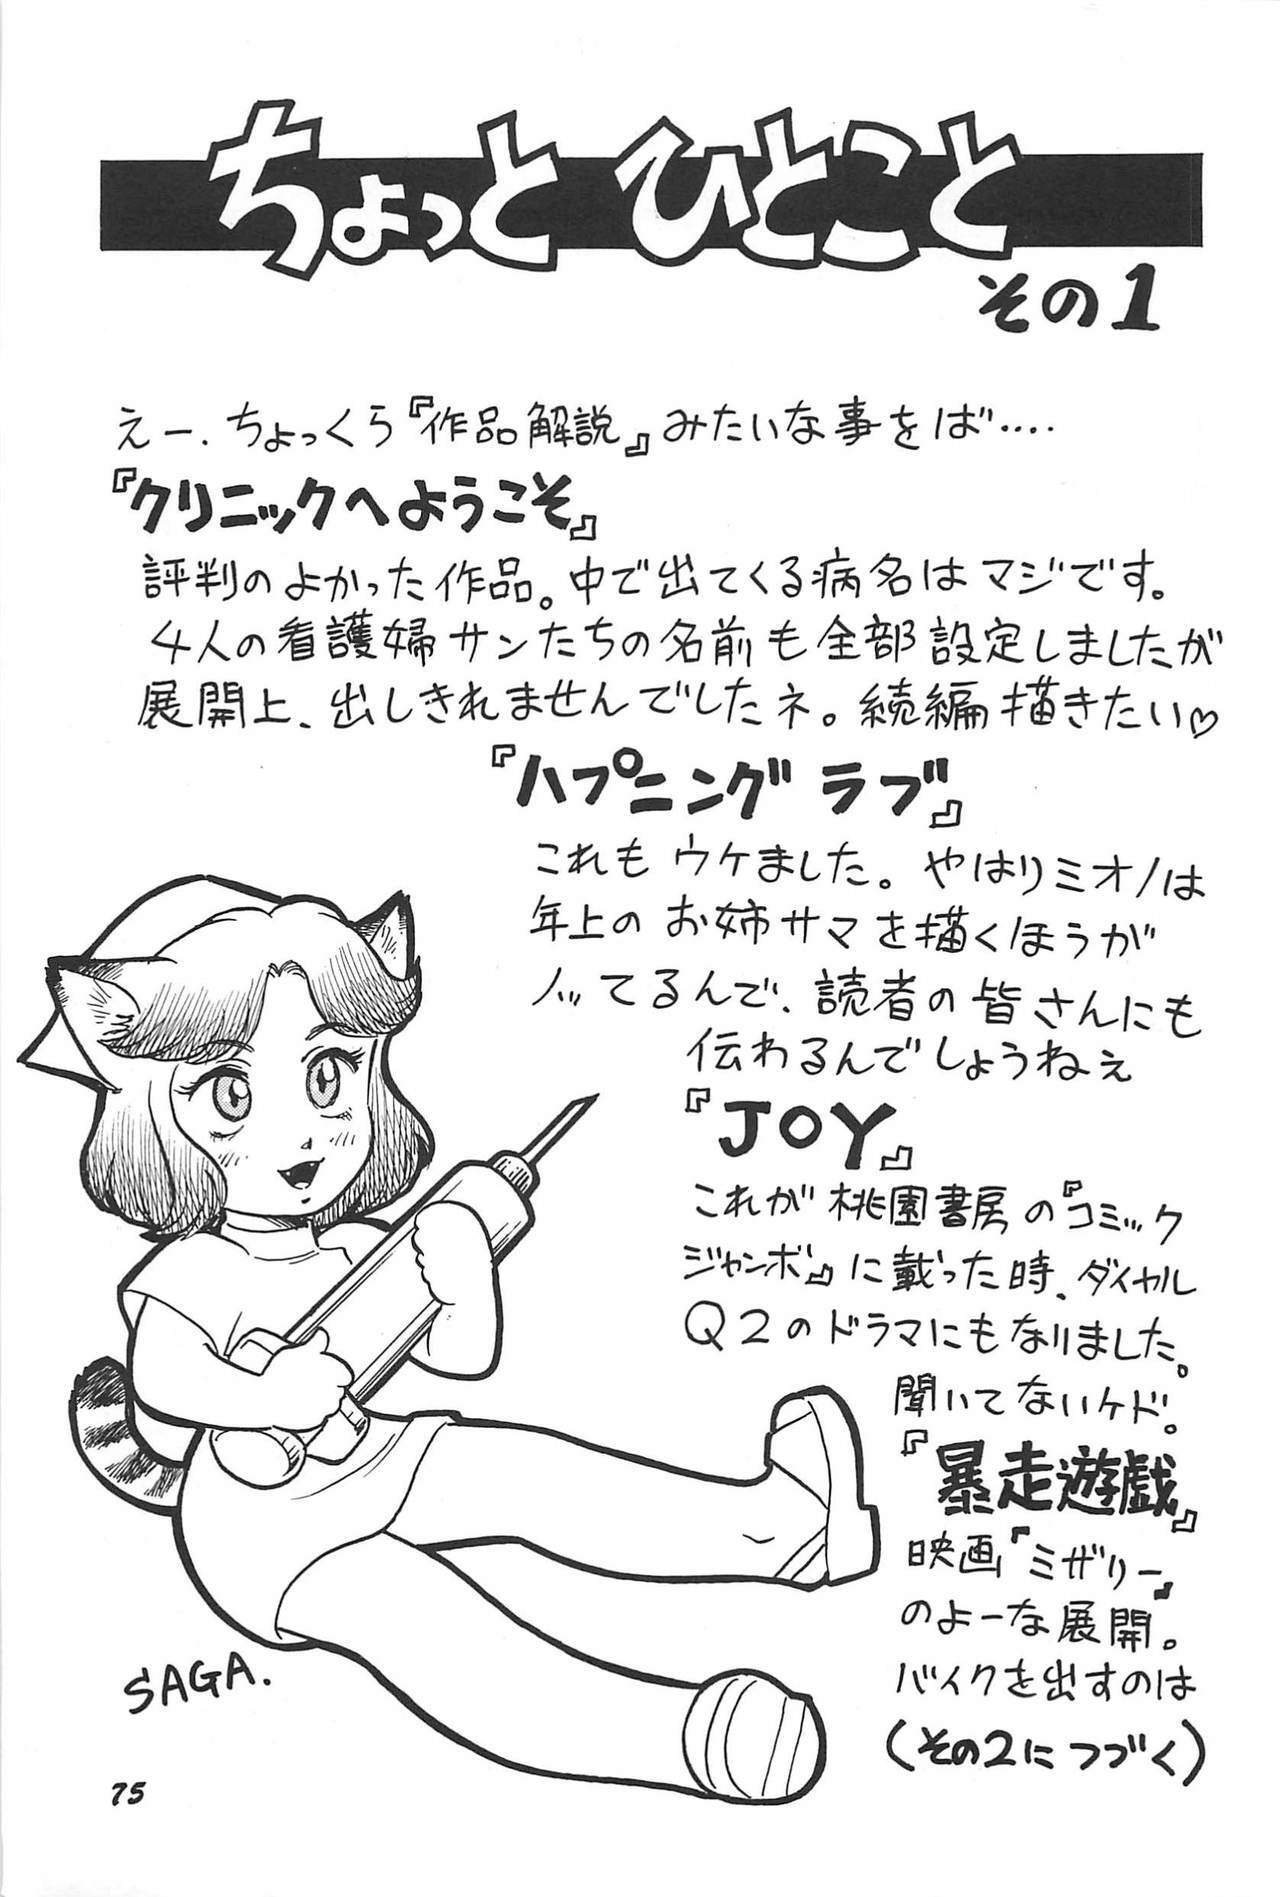 ちょっと ひとこと
その1
えー、ちょっくら『作品解説』みたいな事をば‥‥
『クリニックへようこそ』
評判のよかった作品。中で出てくる病名はマジです。
4人の看護婦サンたちの名前も全部設定しましたが
展開上、出しきれませんでしたネ。続編描きたい♡
『ハプニング ラブ』
これもウケました。やはりミオノは
年上のお姉サマを描くほうが
ノッてるんで、読者の皆さんにも
伝わるんでしょうねぇ
『JOY』
これが桃園書房の『コミック
ジャンボ』に載った時、ダイヤル
Q2のドラマにもなりました。
聞いてないケド。
『暴走遊戯』
映画『ミザリー』
のよーな展開。
バイクを出すのは
(その2につづく)
SAGA.
75